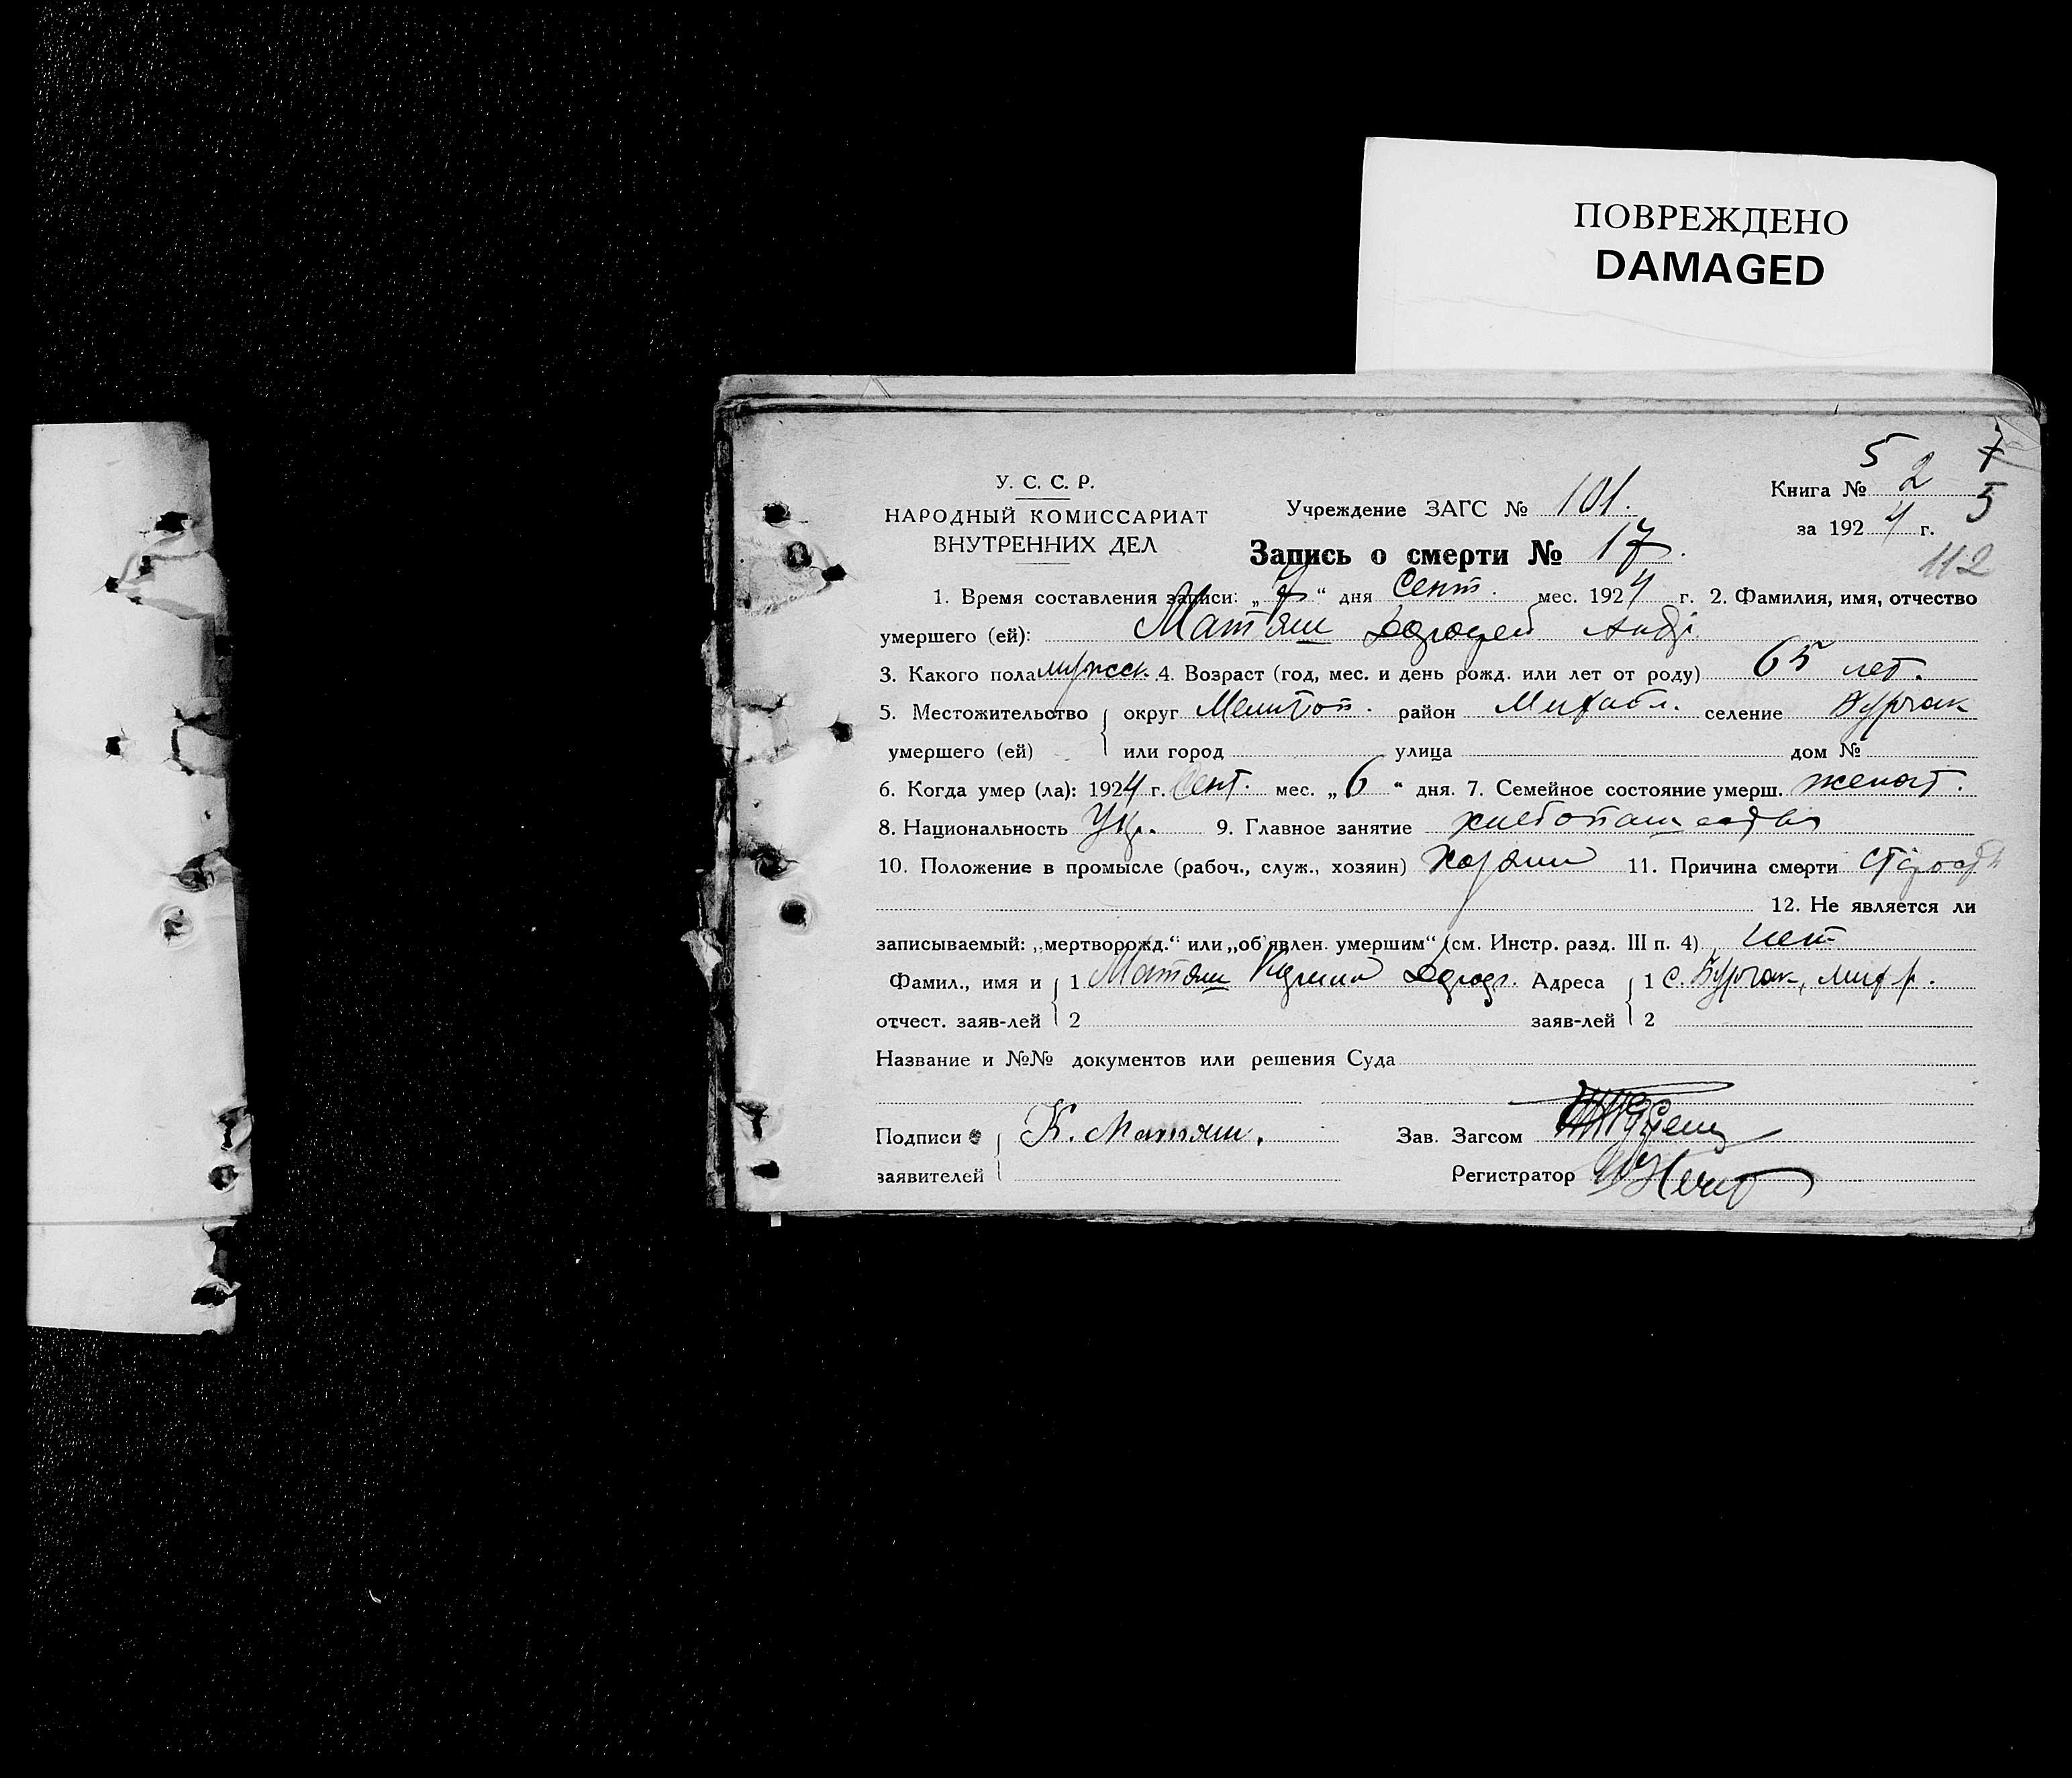 ПОВРЕЖДЕНО
DAMAGED
5 7
У. С. С. Р.
НАРОДНЫЙ КОМИССАРИАТ
ВНУТРЕННИХ ДЕЛ
Учреждение ЗАГС № 101.
Книга № 2
5
за 1924 г.
Запись о смерти № 17.
112
1. Время составления записи: „7“ дня Сент. мес. 1924 г. 2. Фамилия, имя, отчество
умершего (ей): Матяш
3. Какого пола мужск. 4. Возраст (год, мес. и день рожд. или лет от роду) 65 лет.
5. Местожительство округ Мелитоп. район Михайл. селение Бурчак
умершего (ей) или город улица дом №
6. Когда умер (ла): 1924 г. Сент. мес. „6“ дня. 7. Семейное состояние умерш. женат.
8. Национальность Укр. 9. Главное занятие хлебопашество
10. Положение в промысле (рабоч., служ., хозяин) хозяин 11. Причина смерти старость
12. Не является ли
записываемый: „мертворожд.“ или „об'явлен. умершим“ (см. Инстр. разд. III п. 4) нет
Фамил., имя и 1 Матяш Адреса 1 с. Бурчак, Мих. р.
отчест. заяв-лей 2 заяв-лей 2
Название и №№ документов или решения Суда
Подписи К. Матяш. Зав. Загсом
заявителей Регистратор